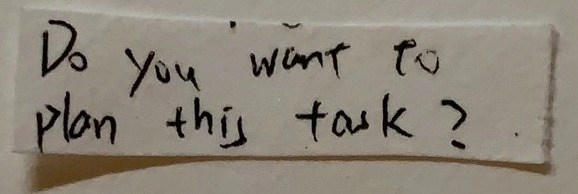 Do you want to
plan this task?